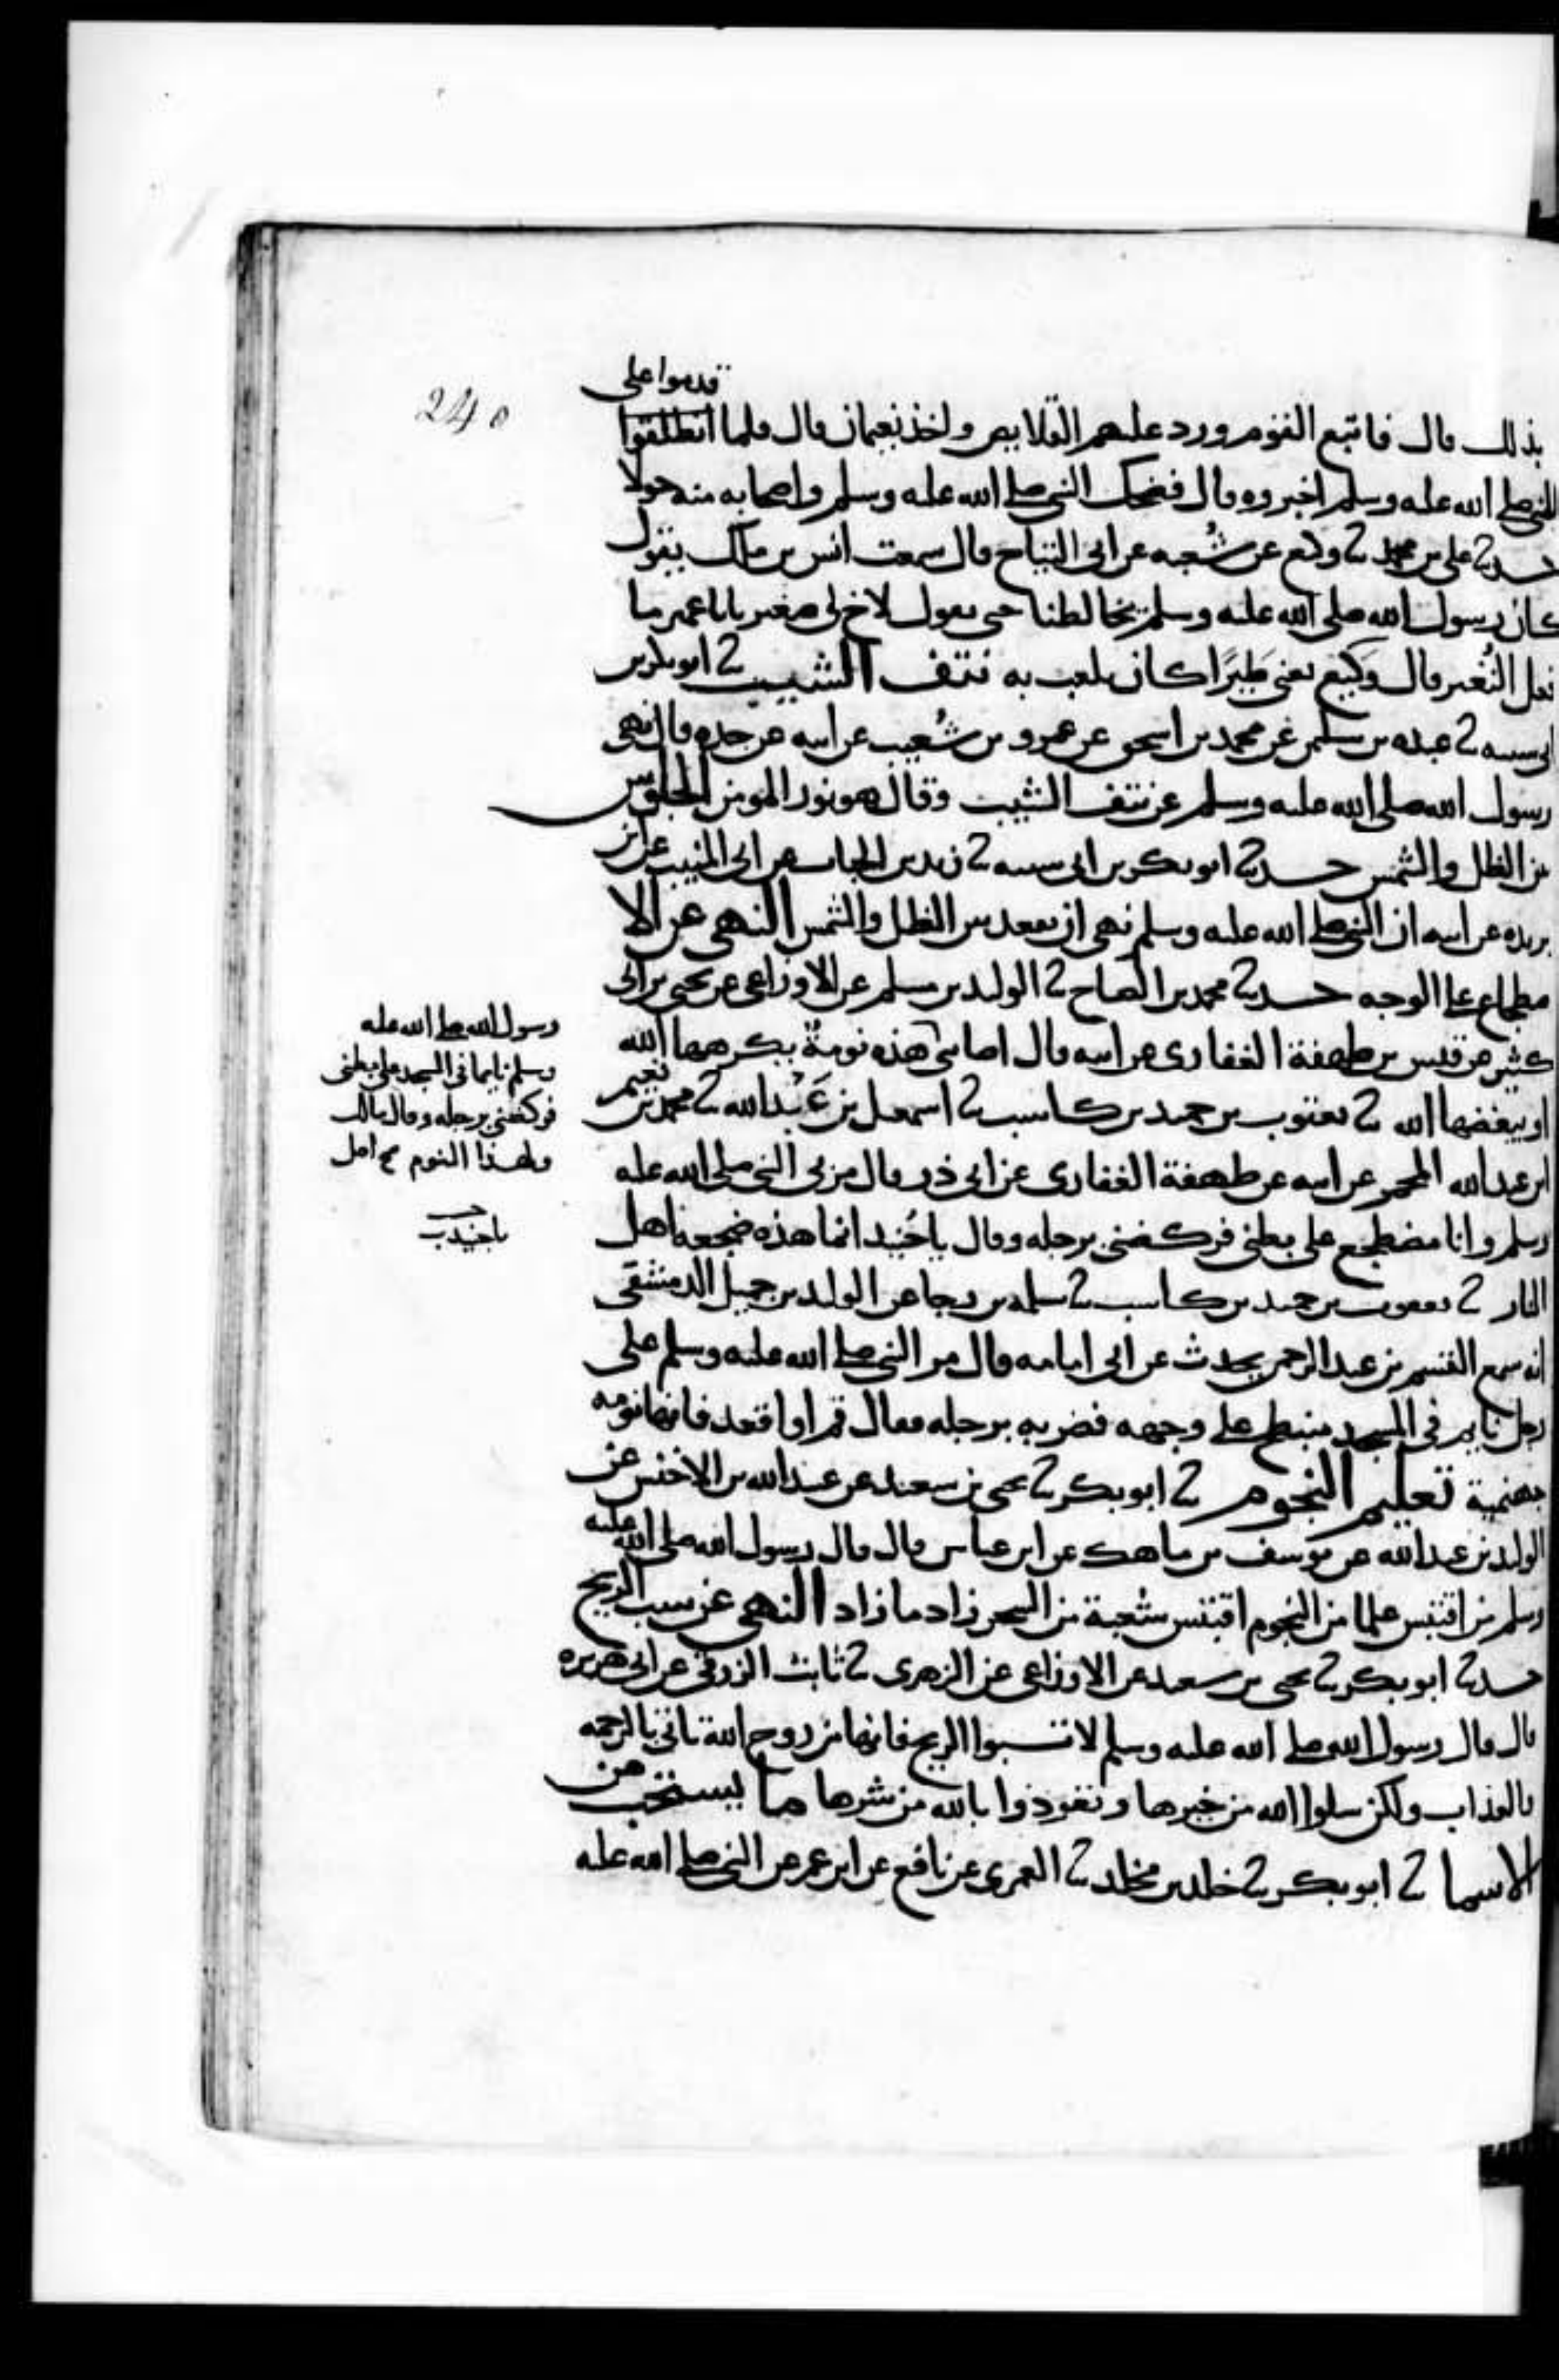 240
قدموا على
بذلك قال فاتبع القوم ورد عليهم القلايص واخذ نعيمان قال فلما انطلقوا
النبي صلى الله عليه وسلم اخبروه قال فضحك النبي صلى الله عليه وسلم واصحابه منه حولا
حدثنا علي بن محمد ثنا وكيع عن شُعبه عن ابي التياح قال سمعت انس بن مالك يقول
كان رسول الله صلى الله عليه وسلم يخالطنا حتى يقول لاخ لي صغير يابا عمير ما
فعل النُغير قال وَكيع يعني طَيرًا كان يلعب به نتف الشيب ثنا ابو بكر بن
ابي شيبه ثنا عبده بن سليمن عن محمد بن اسحق عن عمرو بن شُعيب عن ابيه عن جده قال نهى
رسول الله صلى الله عليه وسلم عن نتف الشيب وقال هو نور المومن الجلوس
بين الظل والشمس حدثنا ابو بكر بن ابي شيبه ثنا زيد بن الحباب عن ابي المنيب عن ابن
بريده عن ابيه ان النبي صلى الله عليه وسلم نهى ان يقعد بين الظل والشمس النهي عن الا
ضطجاع على الوجه حدثنا محمد بن الصباح ثنا الوليد بن مسلم عن الاوزاعي عن يحيى بن ابي
كثير عن قيس بن طهفة الغفاري عن ابيه قال اصابني هذه نومةٌ يكرهها الله
او يبغضها الله ثنا يعقوب بن حميد بن كاسب ثنا اسمعيل بن عَبْد الله ثنا محمد بن نعيم
ابن عبد الله المجمر عن ابيه عن طهفة الغفاري عن ابي ذر قال مر بي النبي صلى الله عليه
وسلم وانا مضطجع على بطني فركضني برجله وقال يا جُنيد انما هذه ضجعة اهل
النار ثنا يعقوب بن حميد بن كاسب ثنا سلمه بن رجا عن الوليد بن جميل الدمشقي
انه سمع القسم بن عبد الرحمن يحدث عن ابي امامه قال مر النبي صلى الله عليه وسلم على
رجل نايم في المسجد منبطح على وجهه فضربه برجله فقال قم او اقعد فانها نومه
جهنمية تعليم النجوم ثنا ابو بكر ثنا يحيى بن سعيد عن عبيد الله بن الاخنس عن
الوليد بن عبد الله عن يوسف بن ماهك عن ابن عباس قال قال رسول الله صلى الله عليه
وسلم من اقتبس علما من النجوم اقتبس شعبة من السحر زاد ما زاد النهي عن سب الريح
حدثنا ابو بكر ثنا يحيى بن سعيد عن الاوزاعي عن الزهري ثنا ثابت الزرقي عن ابي هريره
قال قال رسول الله صلى الله عليه وسلم لا تسبوا الريح فانها من روح الله تاتي بالرحمه
والعذاب ولكن سلوا الله من خيرها وتعوذوا بالله من شرها ما يستحب من
الاسما ثنا ابو بكر ثنا خلد بن مخلد ثنا العمري عن نافع عن ابن عمر عن النبي صلى الله عليه
رسول الله صلى الله عليه
وسلم نايما في المسجد على بطني
فركضني برجله وقال مالك
ولهذا النوم
يا جنيدب